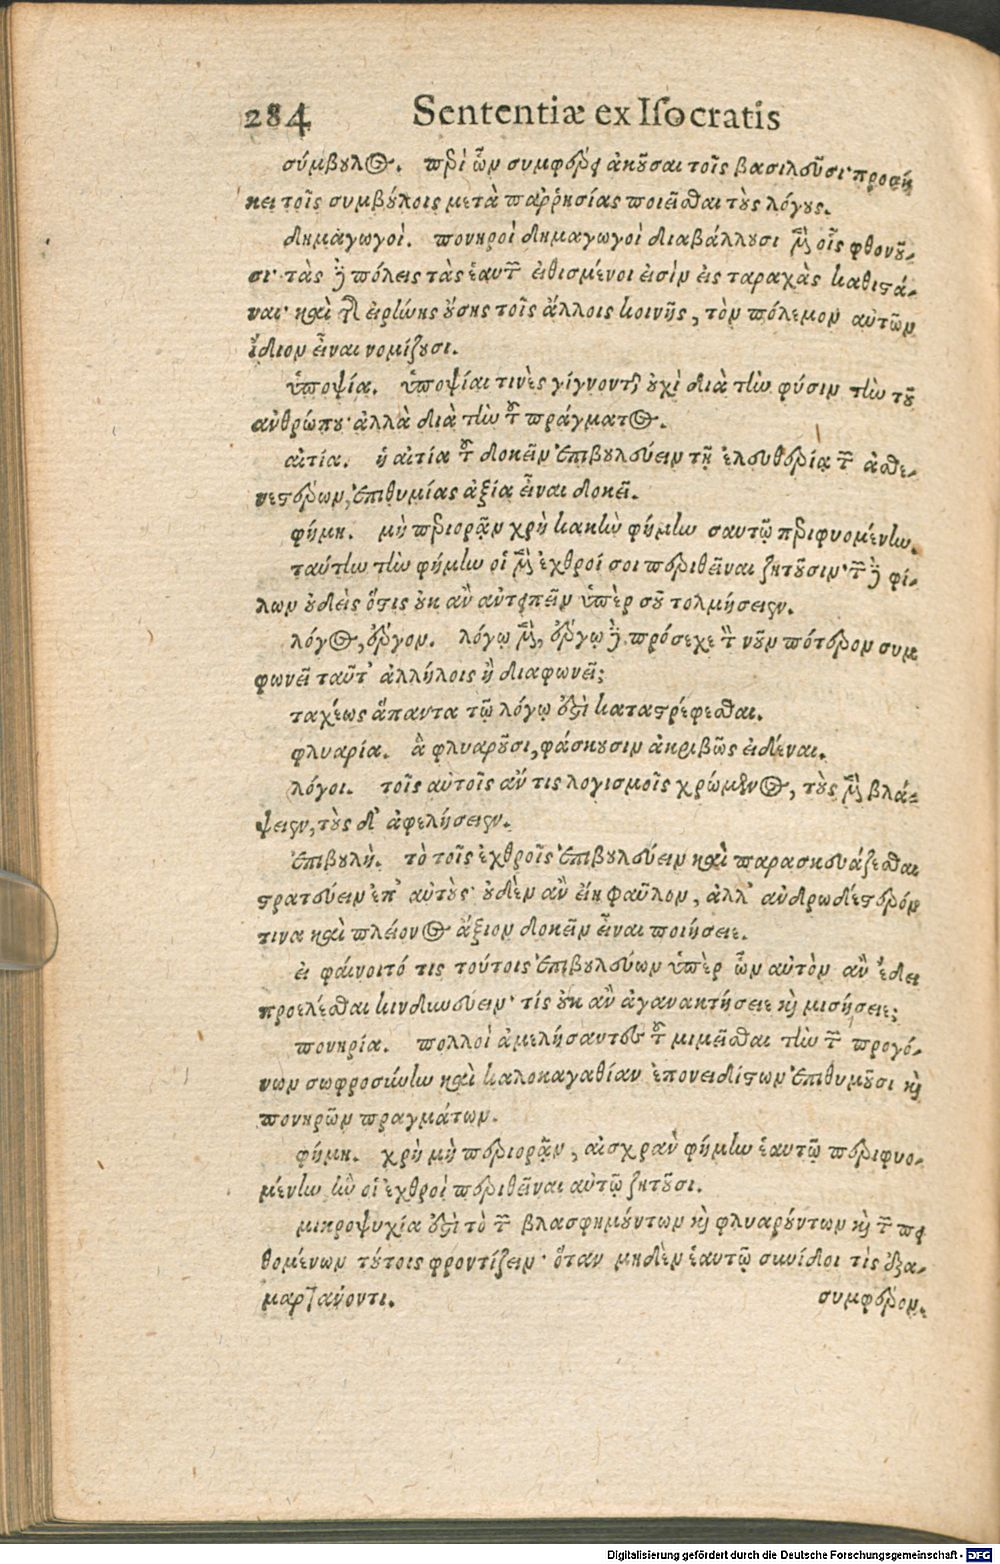 284 Sententiæ ex Iſocratis
σύμβουλος. περὶ ὧν συμφέρει ἀκοῦσαι τοῖς βασιλεῦσι· προσή
κει τοῖς συμβούλοις μετὰ παῤῥησίας ποιεῖσθαι τοὺς λόγους.
δημαγωγοί. πονηροὶ δημαγωγοὶ διαβάλλουσι μὲν οἷς φθονοῦ-
σι· τὰς δὲ πόλεις τὰς ἑαυτῶν εἰθισμένοι εἰσὶν εἰς ταραχὰς καθιστά-
ναι· καὶ τῆς εἰρήνης οὔσης τοῖς ἄλλοις κοινῆς, τὸν πόλεμον αὐτῶν
ἴδιον εἶναι νομίζουσι.
ὑποψία. ὑποψίαι τινὲς γίγνονται οὐχὶ διὰ τὴν φύσιν τὴν τοῦ
ἀνθρώπου· ἀλλὰ διὰ τὴν τοῦ πράγματος.
αἰτία. ἡ αἰτία τοῦ δοκεῖν ἐπιβουλεύειν τῇ ἐλευθερίᾳ τῶν ἀσθε-
νεστέρων, ἐπιθυμίας ἀξία εἶναι δοκεῖ.
φήμη. μὴ περιορᾷν χρὴ κακὴν φήμην σαυτῷ περιφυομένην.
ταύτην τὴν φήμην οἱ μὲν ἐχθροί σοι περιθεῖναι ζητοῦσιν· τῶν δὲ φί-
λων οὐδεὶς ὅστις οὐκ ἂν ἀντειπεῖν ὑπὲρ σοῦ τολμήσειεν.
λόγος, ἔργον. λόγῳ μὲν, ἔργῳ δὲ. πρόσεχε τὸν νοῦν πότερον συμ
φωνεῖ ταῦτ' ἀλλήλοις ἢ διαφωνεῖ;
ταχέως ἅπαντα τῷ λόγῳ ἐστὶ καταστρέφεσθαι.
φλυαρία. ἃ φλυαροῦσι, φάσκουσιν ἀκριβῶς εἰδέναι.
λόγοι. τοῖς αὐτοῖς ἄν τις λογισμοῖς χρώμενος, τοὺς μὲν βλά-
ψειεν, τοὺς δ' ἀφελήσειεν.
ἐπιβουλή. τὸ τοῖς ἐχθροῖς ἐπιβουλεύειν καὶ παρασκευάζεσθαι
στρατεύειν ἐπ' αὐτούς· οὐδὲν ἂν εἴη φαῦλον, ἀλλ' ἀνδρωδέστερόν
τινα καὶ πλείονος ἄξιον δοκεῖν εἶναι ποιήσειε.
εἰ φαίνοιτό τις τούτοις ἐπιβουλεύων ὑπὲρ ὧν αὐτὸν ἂν ἔδει
προελέσθαι κινδυνεύειν· τίς οὐκ ἂν ἀγανακτήσειε καὶ μισήσειε;
πονηρία. πολλοὶ ἀμελήσαντες τοῦ μιμεῖσθαι τὴν τῶν προγό-
νων σωφροσύνην καὶ καλοκαγαθίαν ἐπονειδίστων ἐπιθυμοῦσι καὶ
πονηρῶν πραγμάτων.
φήμη. χρὴ μὴ περιορᾷν, αἰσχρὰν φήμην ἑαυτῷ περιφυο-
μένην ἣν οἱ ἐχθροὶ περιθεῖναι αὐτῷ ζητοῦσι.
μικροψυχία ἐστὶ τὸ τῶν βλασφημούντων καὶ φλυαρούντων καὶ τῶν πει
θομένων τούτοις φροντίζειν· ὅταν μηδὲν ἑαυτῷ συνίδοι τὶς ἐξα-
μαρτάνοντι. συμφέρον.
Digitalisierung gefördert durch die Deutsche Forschungsgemeinschaft - DFG